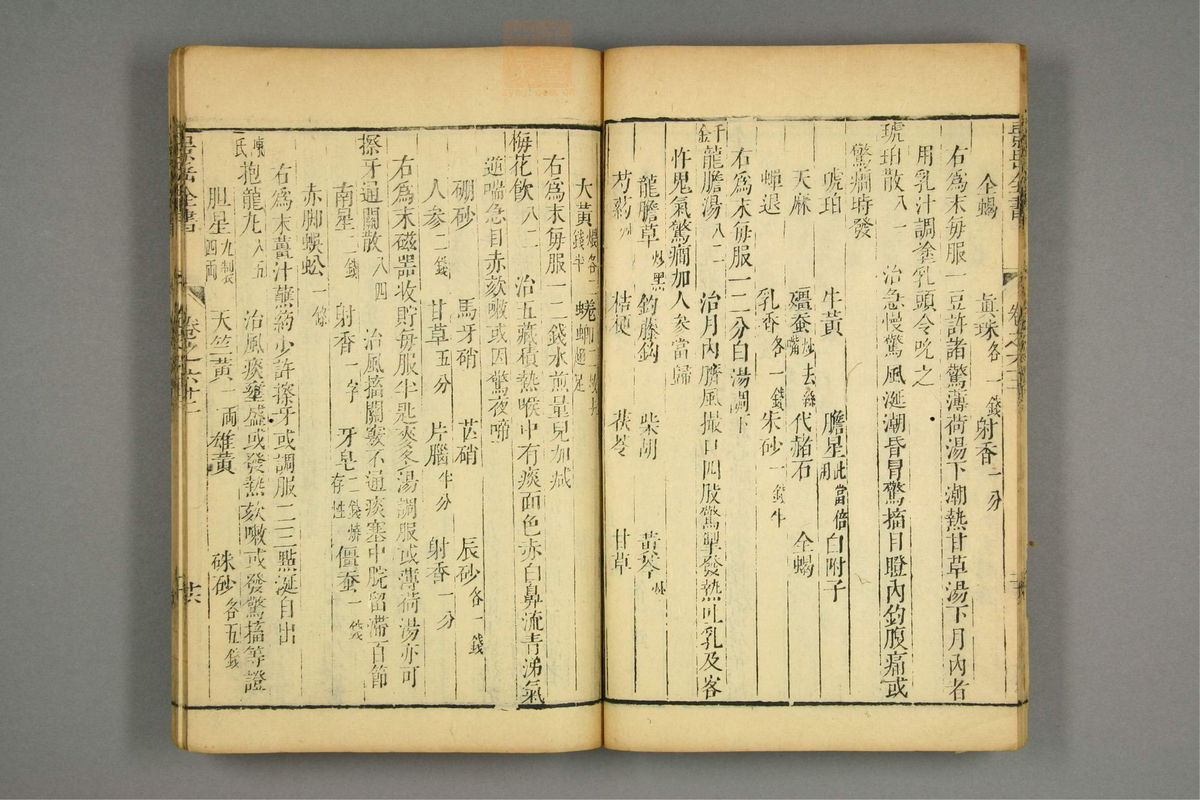 景岳全書
全蝎 眞珠各一錢 射香二分
右爲末每服一豆許諸驚薄荷湯下潮熱甘草湯下月內者
用乳汁調塗乳頭令吮之
琥珀散八一 治急慢驚風涎潮昏冒驚搐目瞪內釣腹痛或
驚癇時發
琥珀 牛黃 膽星此當倍用 白附子
天麻 殭蚕炒去絲嘴 代赭石 全蝎
蟬退 乳香各一錢 朱砂一錢半
右爲末每服一二分白湯調下
千金龍膽湯八二 治月內臍風撮口四肢驚掣發熱吐乳及客
忤鬼氣驚癇加人參當歸
龍膽草炒黑 鈎藤鈎 柴胡 黃芩炒
芍藥炒 桔梗 茯苓 甘草
大黃煨各二錢半 蜣蜋二 足
右爲末每服一二錢水煎量兒加減
梅花飲八二 治五藏積熱喉中有痰面色赤白鼻流青涕氣
逆喘急目赤欬嗽或因驚夜啼
硼砂 馬牙硝 芒硝 辰砂各一錢
人參二錢 甘草五分 片腦半分 射香一分
右爲末磁器收貯每服半匙麥冬湯調服或薄荷湯亦可
擦牙通關散八四 治風搐關竅不通痰塞中脘留滯百節
南星二錢 射香一字 牙皂二錢燒存性 僵蚕一錢
赤脚蜈蚣一條
右爲末薑汁蘸藥少許擦牙或調服二三點涎自出
陳氏抱龍丸八五 治風痰壅盛或發熱欬嗽或發驚搐等證
胆星九製四兩 天竺黃一兩 雄黃 硃砂各五錢
景岳全書